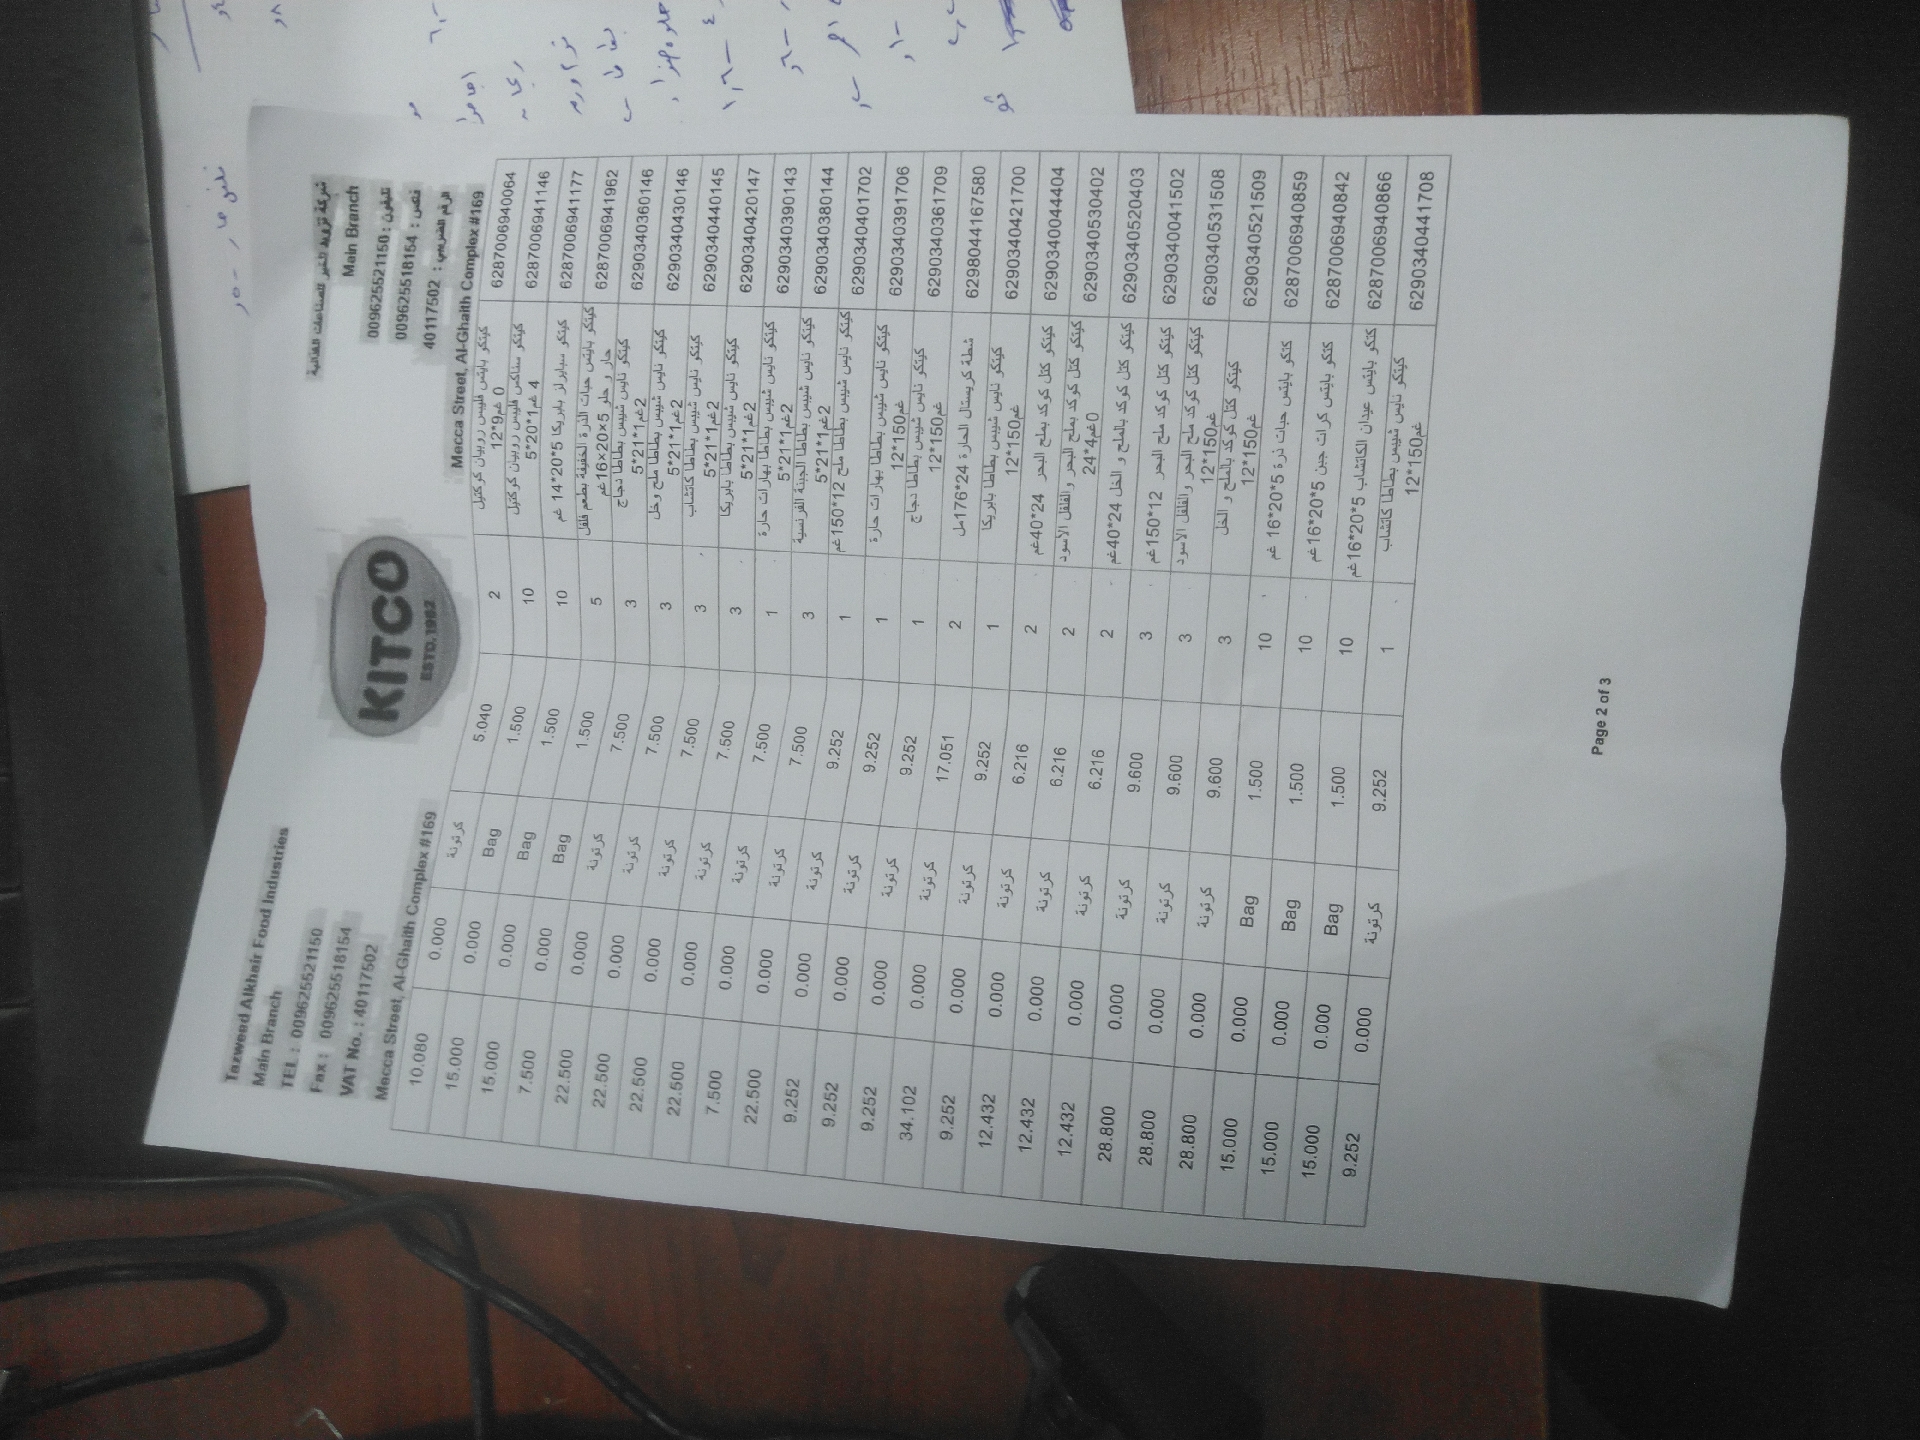 شركة تزويد الخير للصناعات الغذائية
Main Branch
تلفون : 009625521150
فاكس : 0096255518154
الرقم الضريبي : 40117502
Mecca Street, Al-Ghaith Complex #169
KITCO
ESTD.1982
Tazweed Alkhair Food Industries
Main Branch
TEL : 0096255521150
Fax : 0096255518154
VAT No. : 40117502
Mecca Street, Al-Ghaith Complex #169
6287006940064 كيتكو بايتس فليس روبيان كوكتيل 2 5.040 كرتونة 0.000 10.080
12*9غم 0
6287006941146 كيتكو سناكس فليس روبيان كوكتيل 10 1.500 Bag 0.000 15.000
5*20*1غم 4
6287006941177 كيتكو سبايرلز بابريكا 5*20*14 غم 10 1.500 Bag 0.000 15.000
6287006941962 كيتكو بايتس حبات الذرة الخفيفة بطعم فلفل 5 1.500 Bag 0.000 7.500
حار و حلو 5×20×16غم
6290340360146 كيتكو نايس شيبس بطاطا دجاج 3 7.500 كرتونة 0.000 22.500
5*21*1غم2
6290340430146 كيتكو نايس شيبس بطاطا ملح وخل 3 7.500 كرتونة 0.000 22.500
5*21*1غم2
6290340440145 كيتكو نايس شيبس بطاطا كاتشاب 3 7.500 كرتونة 0.000 22.500
5*21*1غم2
6290340420147 كيتكو نايس شيبس بطاطا بابريكا 3 7.500 كرتونة 0.000 22.500
5*21*1غم2
6290340390143 كيتكو نايس شيبس بطاطا بهارات حارة 1 7.500 كرتونة 0.000 7.500
5*21*1غم2
6290340380144 كيتكو نايس شيبس بطاطا الجبنة الفرنسية 3 7.500 كرتونة 0.000 22.500
5*21*1غم2
6290340401702 كيتكو نايس شيبس بطاطا ملح 12*150غم 1 9.252 كرتونة 0.000 9.252
6290340391706 كيتكو نايس شيبس بطاطا بهارات حارة 1 9.252 كرتونة 0.000 9.252
12*150غم
6290340361709 كيتكو نايس شيبس بطاطا دجاج 1 9.252 كرتونة 0.000 9.252
12*150غم
6298044167580 شطة كريستال الحارة 24*176مل 2 17.051 كرتونة 0.000 34.102
6290340421700 كيتكو نايس شيبس بطاطا بابريكا 1 9.252 كرتونة 0.000 9.252
12*150غم
6290340044404 كيتكو كتل كوكد بملح البحر 24*40غم 2 6.216 كرتونة 0.000 12.432
6290340530402 كيتكو كتل كوكد بملح البحر والفلفل الاسود 2 6.216 كرتونة 0.000 12.432
24*4غم0
6290340520403 كيتكو كتل كوكد بالملح و الخل 24*40غم 2 6.216 كرتونة 0.000 12.432
6290340041502 كيتكو كتل كوكد ملح البحر 12*150غم 3 9.600 كرتونة 0.000 28.800
6290340531508 كيتكو كتل كوكد ملح البحر والفلفل الاسود 3 9.600 كرتونة 0.000 28.800
12*150غم
6290340521509 كيتكو كتل كوكد بالملح و الخل 3 9.600 كرتونة 0.000 28.800
12*150غم
6287006940859 كتكو بايتس حبات ذرة 5*20*16 غم 10 1.500 Bag 0.000 15.000
6287006940842 كتكو بايتس كرات جبن 5*20*16غم 10 1.500 Bag 0.000 15.000
6287006940866 كتكو بايتس عيدان الكاتشاب 5*20*16غم 10 1.500 Bag 0.000 15.000
6290340441708 كيتكو نايس شيبس بطاطا كاتشاب 1 9.252 كرتونة 0.000 9.252
12*150غم
Page 2 of 3